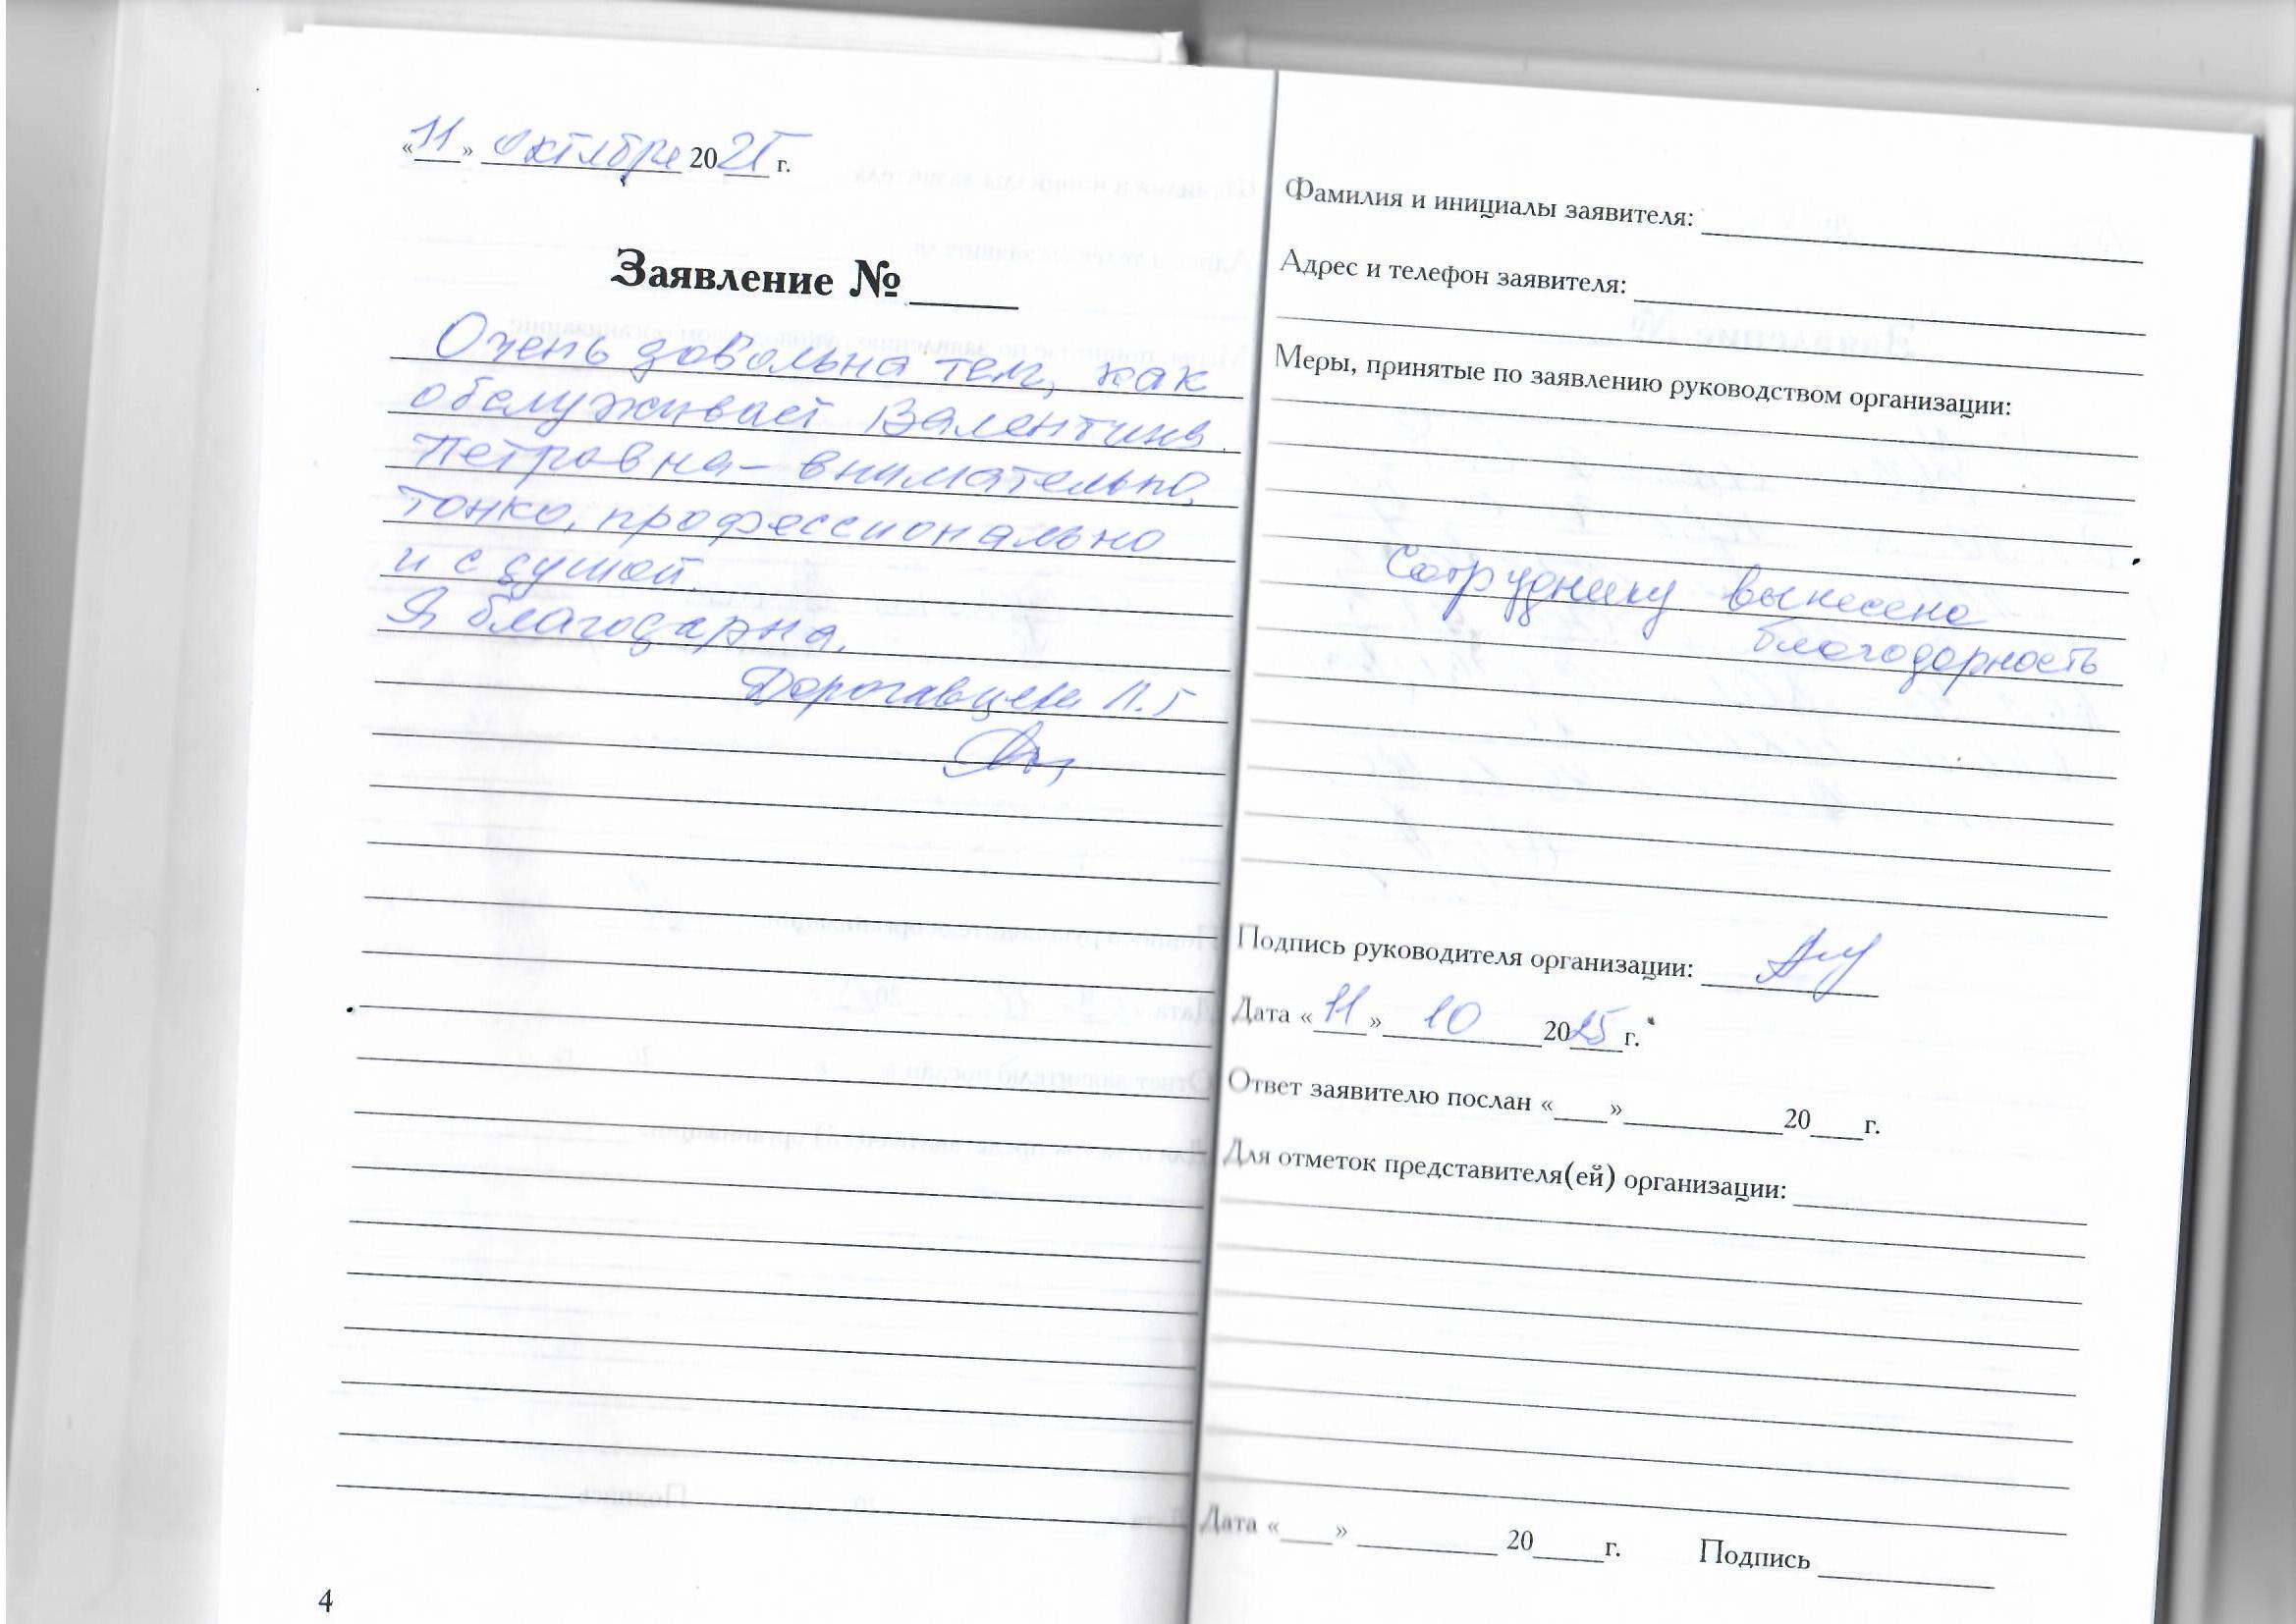 «11» октября 2025 г.
Заявление № ____
Очень довольна тем, как
обслуживает Валентина
Петровна – внимательно,
тонко, профессионально
и с душой.
Я благодарна.
Л.Г
4
Фамилия и инициалы заявителя: ____
Адрес и телефон заявителя: ____
Меры, принятые по заявлению руководством организации:
Сотруднику вынесена
благодарность
Подпись руководителя организации: ____
Дата «11» 10 2025 г.
Ответ заявителю послан «____» ____ 20____ г.
Для отметок представителя(ей) организации: ____
Дата «____» ____ 20____ г. Подпись ____